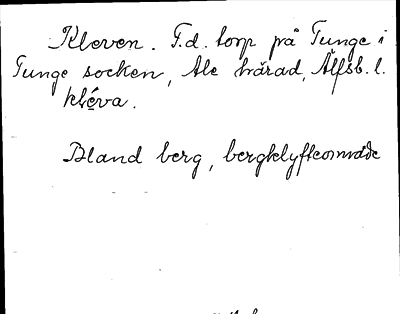 Kleven. F.d. torp på Tunge i
Tunge socken, Ale härad, Älfsb. l.
kléva.
Bland berg, bergklyfteområde